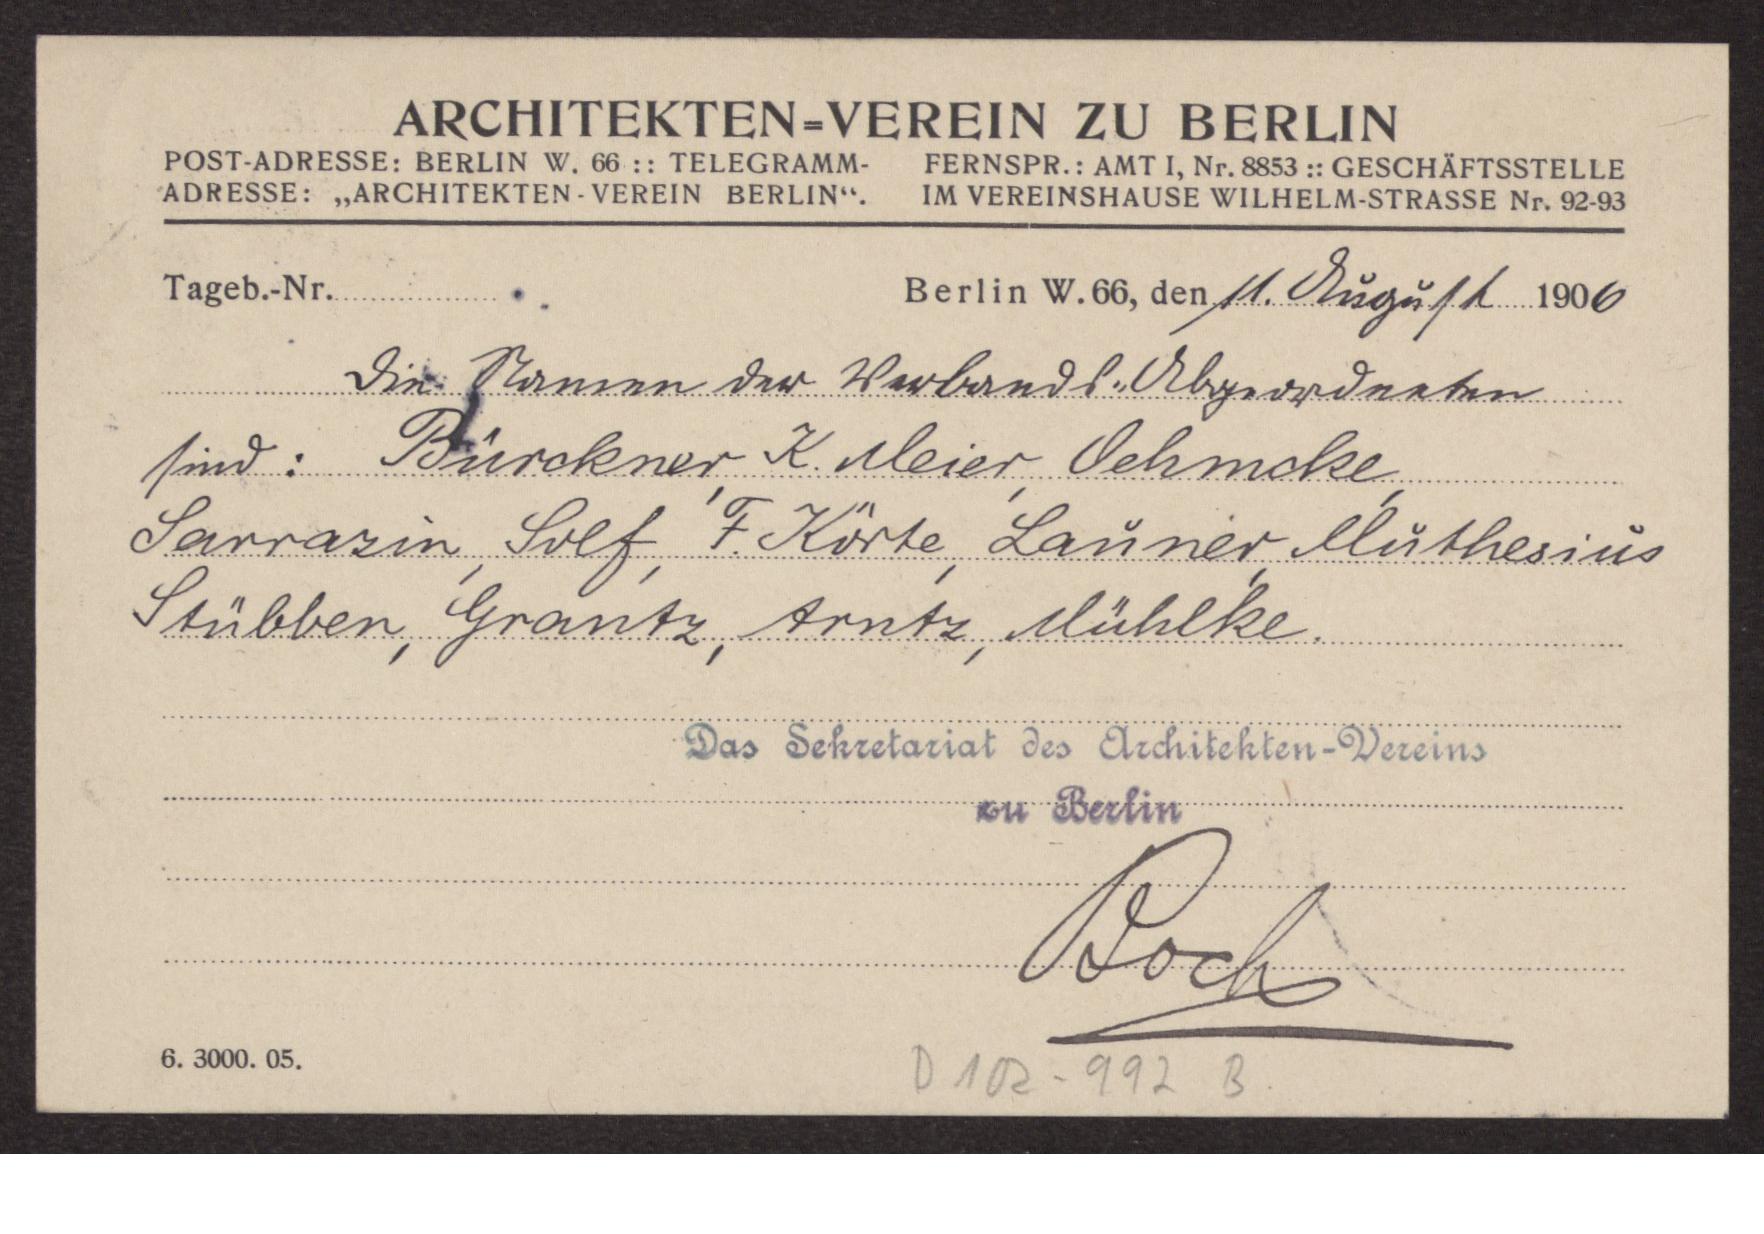 ARCHITEKTEN-VEREIN ZU BERLIN
POST-ADRESSE: BERLIN W. 66 :: TELEGRAMM-
ADRESSE: „ARCHITEKTEN-VEREIN BERLIN“.
FERNSPR.: AMT I, Nr. 8853 :: GESCHÄFTSSTELLE
IM VEREINSHAUSE WILHELM-STRASSE Nr. 92-93
Tageb.-Nr.
Berlin W. 66, den 11. August 1906
Die Namen der Verbands-Abgeordneten
sind: Bürckner, K. Meier, Oehmcke,
Sarrazin, Solf, F. Körte, Launer, Muthesius
Stübben, Grantz, Arntz, Mühlke.
Das Sekretariat des Architekten-Vereins
zu Berlin
6. 3000. 05.
D 102-992 B.